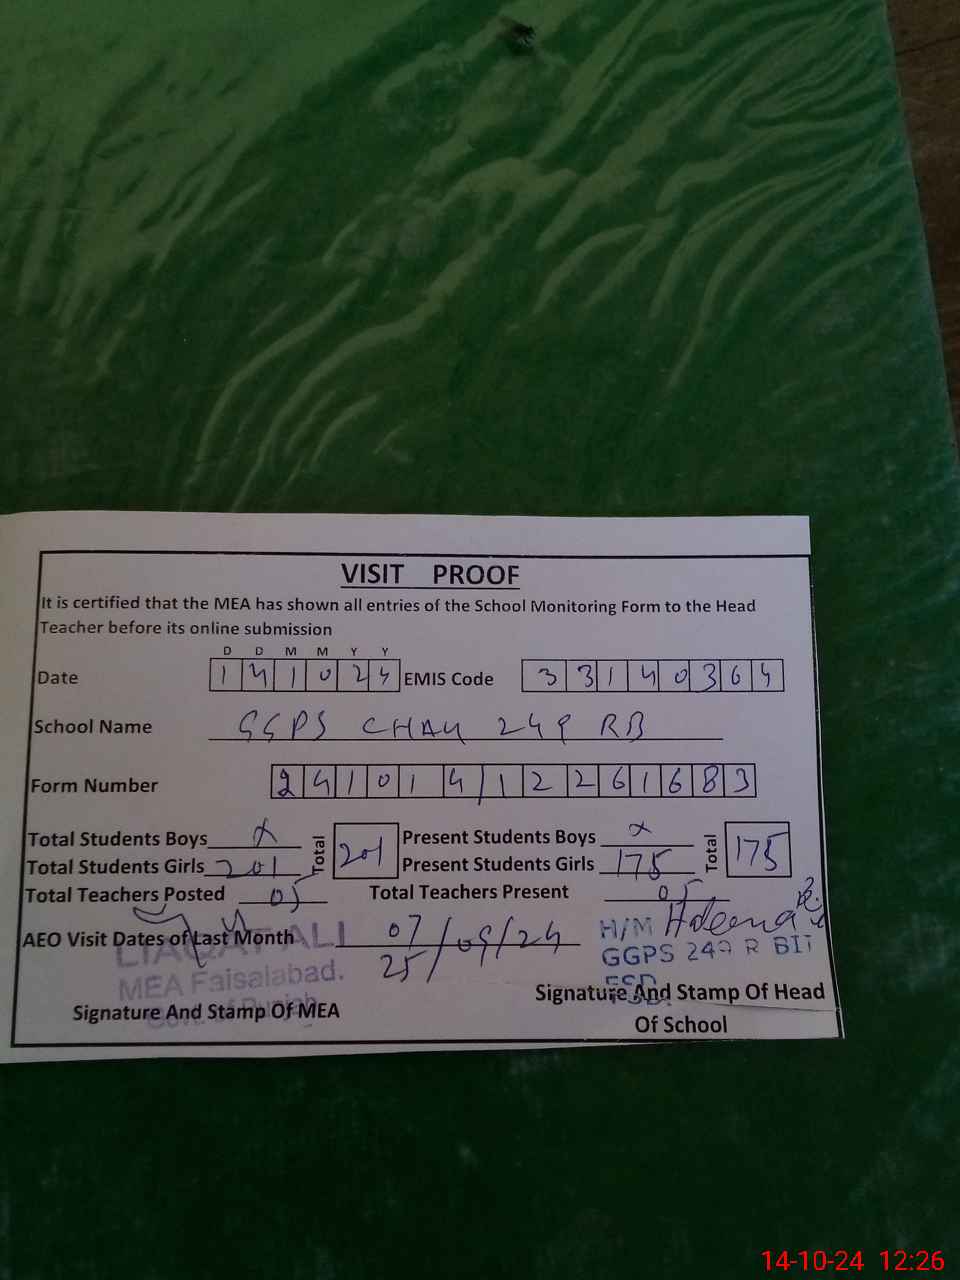 VISIT PROOF
It is certified that the MEA has shown all entries of the School Monitoring Form to the Head
Teacher before its online submission
D D M M Y Y
Date 141024 EMIS Code 33140364
School Name GGPS CHAK 249 RB
Form Number 241014/122261683
Total Students Boys x Total 201 Present Students Boys x Total 175
Total Students Girls 201 Present Students Girls 175
Total Teachers Posted 05 Total Teachers Present 05
AEO Visit Dates of Last Month 07/09/24
25
LIAQAT ALI
MEA Faisalabad.
H/M Haleema
GGPS 249 R B
FSD.
Signature And Stamp Of MEA
Signature And Stamp Of Head
Of School
14-10-24 12:26